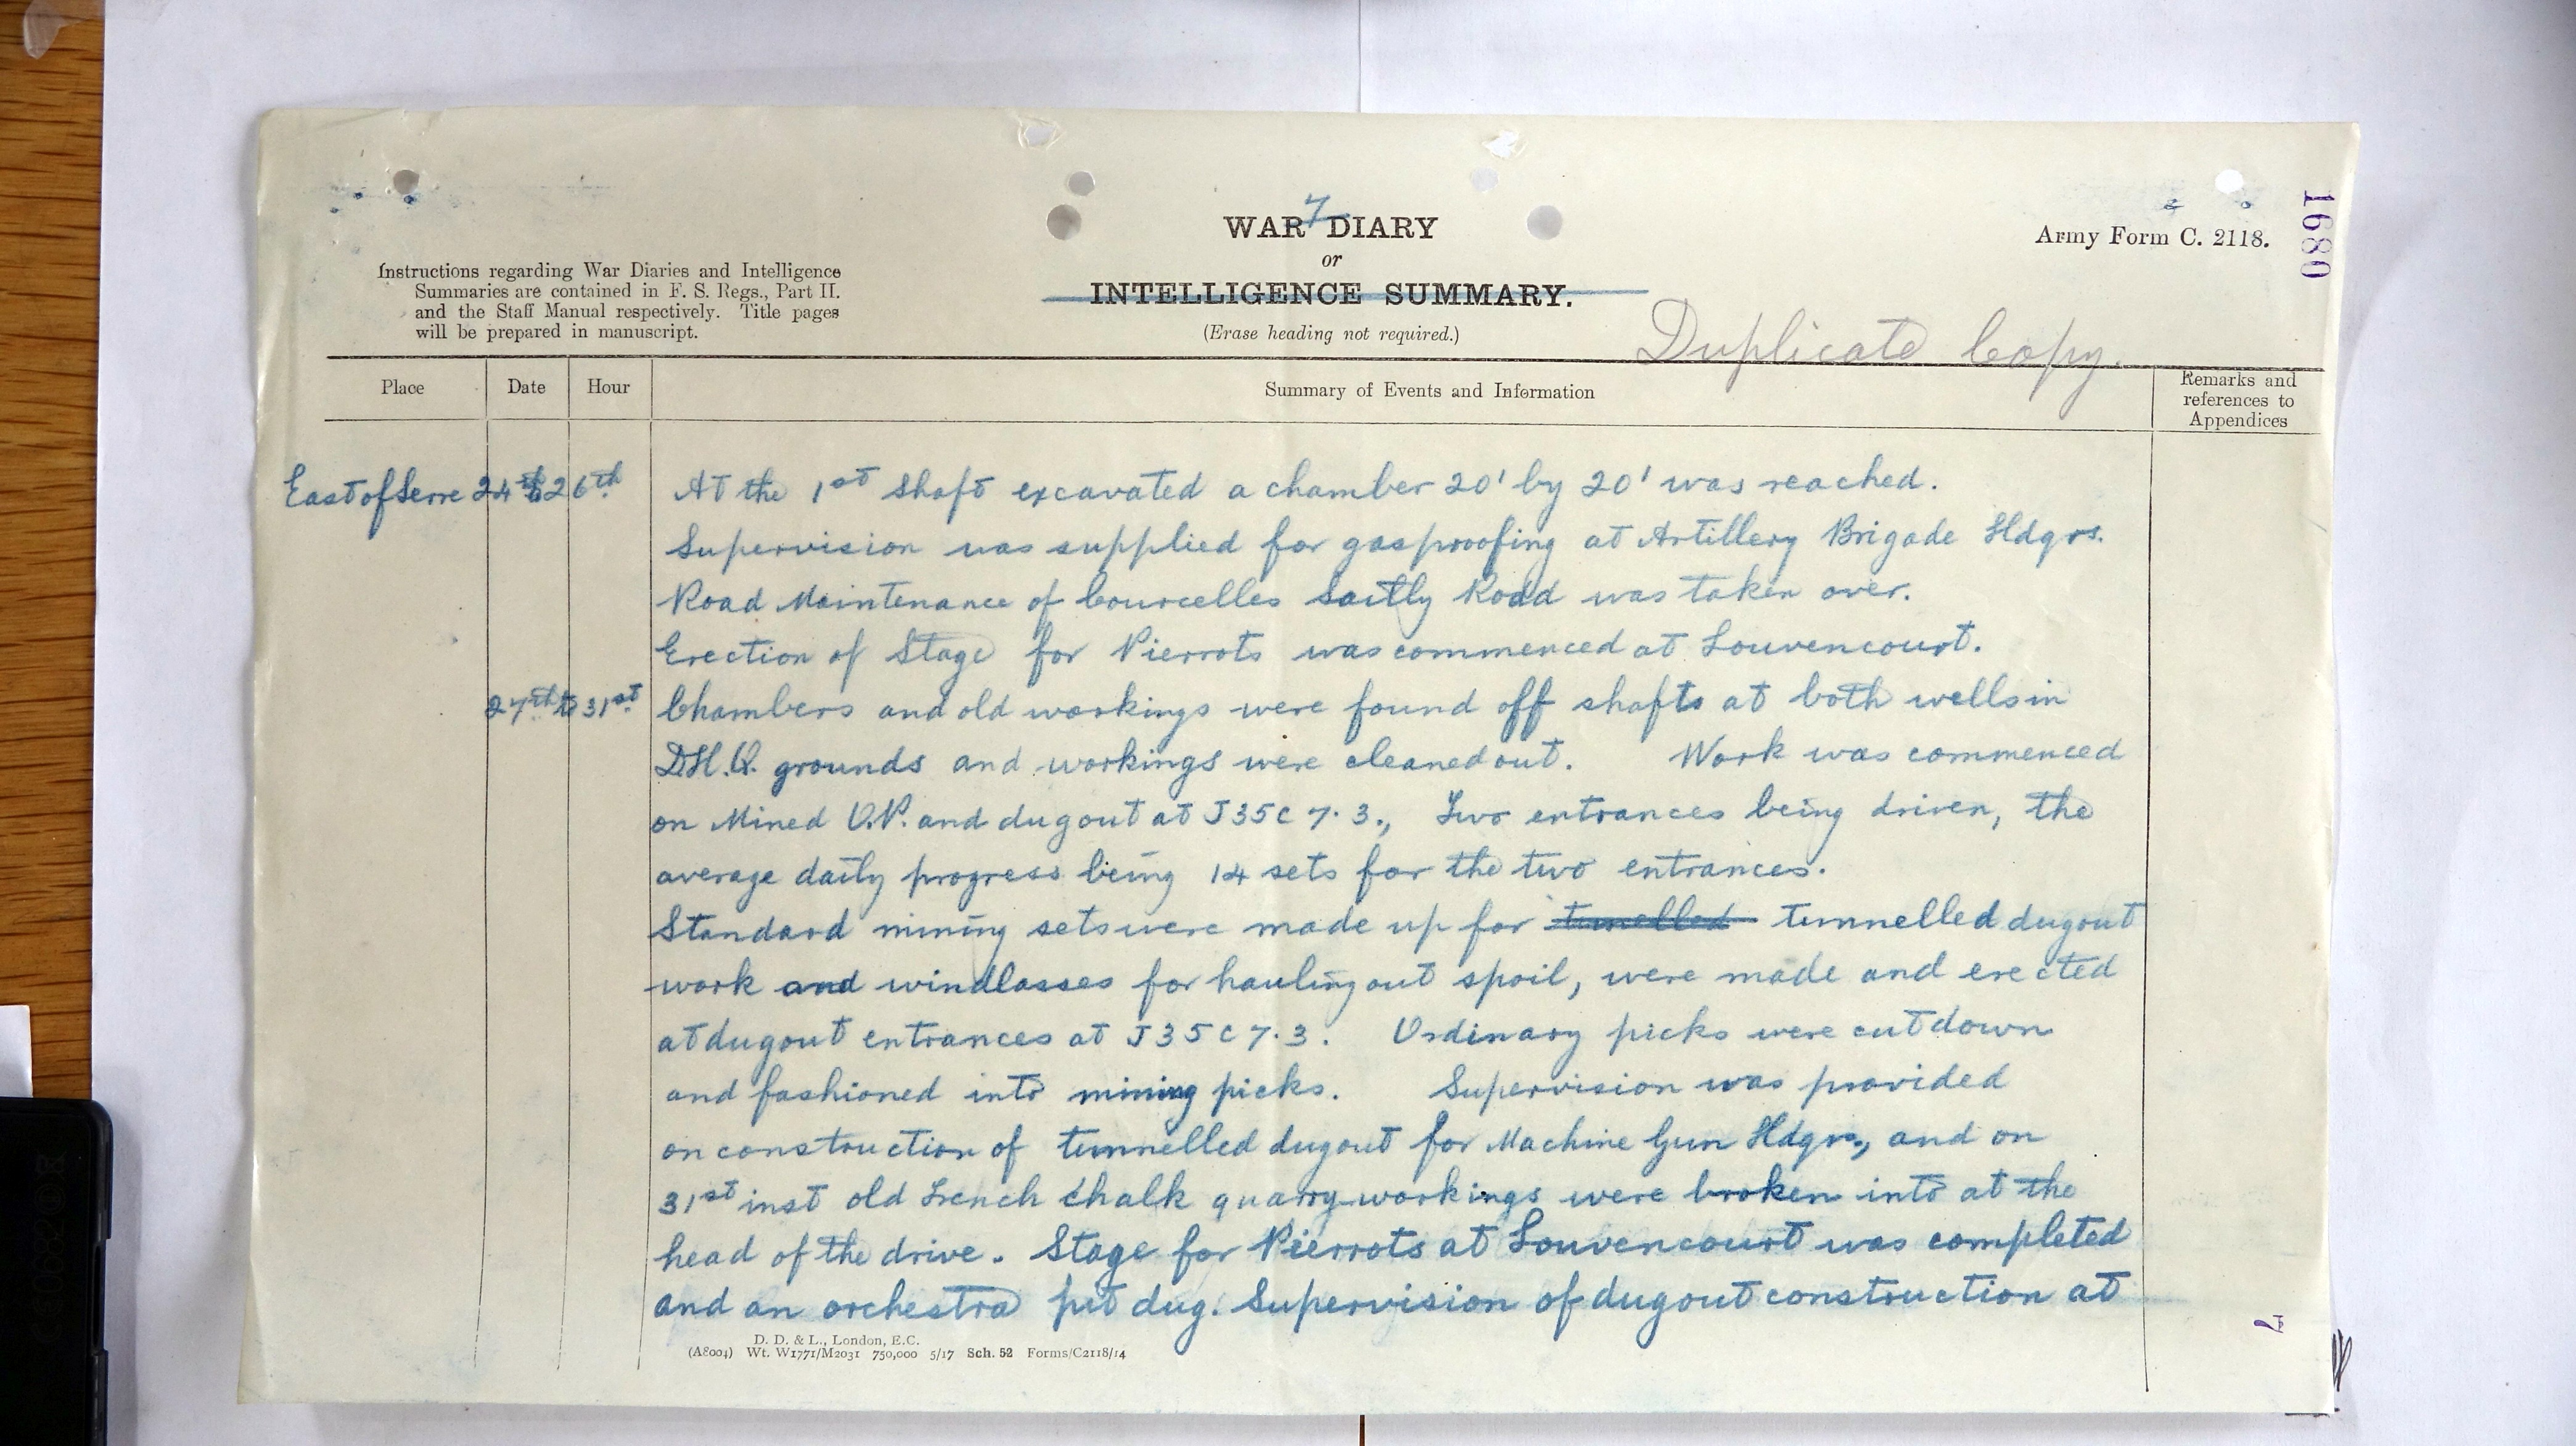 7
WAR DIARY
or
INTELLIGENCE SUMMARY.
(Erase heading not required.)
Army Form C. 2118.
1680
Instructions regarding War Diaries and Intelligence
Summaries are contained in F. S. Regs., Part II.
and the Staff Manual respectively. Title pages
will be prepared in manuscript.
Duplicate Copy.
Place Date Hour Summary of Events and Information Remarks and
references to
Appendices
East of Serre 24th to 26th At the 1st shaft excavated a chamber 20' by 20' was reached.
Supervision was supplied for gasproofing at Artillery Brigade Hdqrs.
Road Maintenance of Courcelles Sailly Road was taken over.
Erection of Stage for Pierrots was commenced at Louvencourt.
27th to 31st Chambers and old workings were found off shafts at both wells in
D.H.Q. grounds and workings were cleaned out. Work was commenced
on Mined O.P. and dugout at J35C 7.3., Two entrances being driven, the
average daily progress being 14 sets for the two entrances.
Standard mining sets were made up for tunelled tunnelled dugout
work and windlasses for hauling out spoil, were made and erected
at dugout entrances at J35C 7.3. Ordinary picks were cut down
and fashioned into mining picks. Supervision was provided
on construction of tunnelled dugout for Machine Gun Hdqrs, and on
31st inst old French chalk quarry workings were broken into at the
head of the drive. Stage for Pierrots at Louvencourt was completed
and an orchestra pit dug. Supervision of dugout construction at
D. D. & L., London, E.C.
(A8004) Wt. W1771/M2031 750,000 5/17 Sch. 52 Forms/C2118/14
7